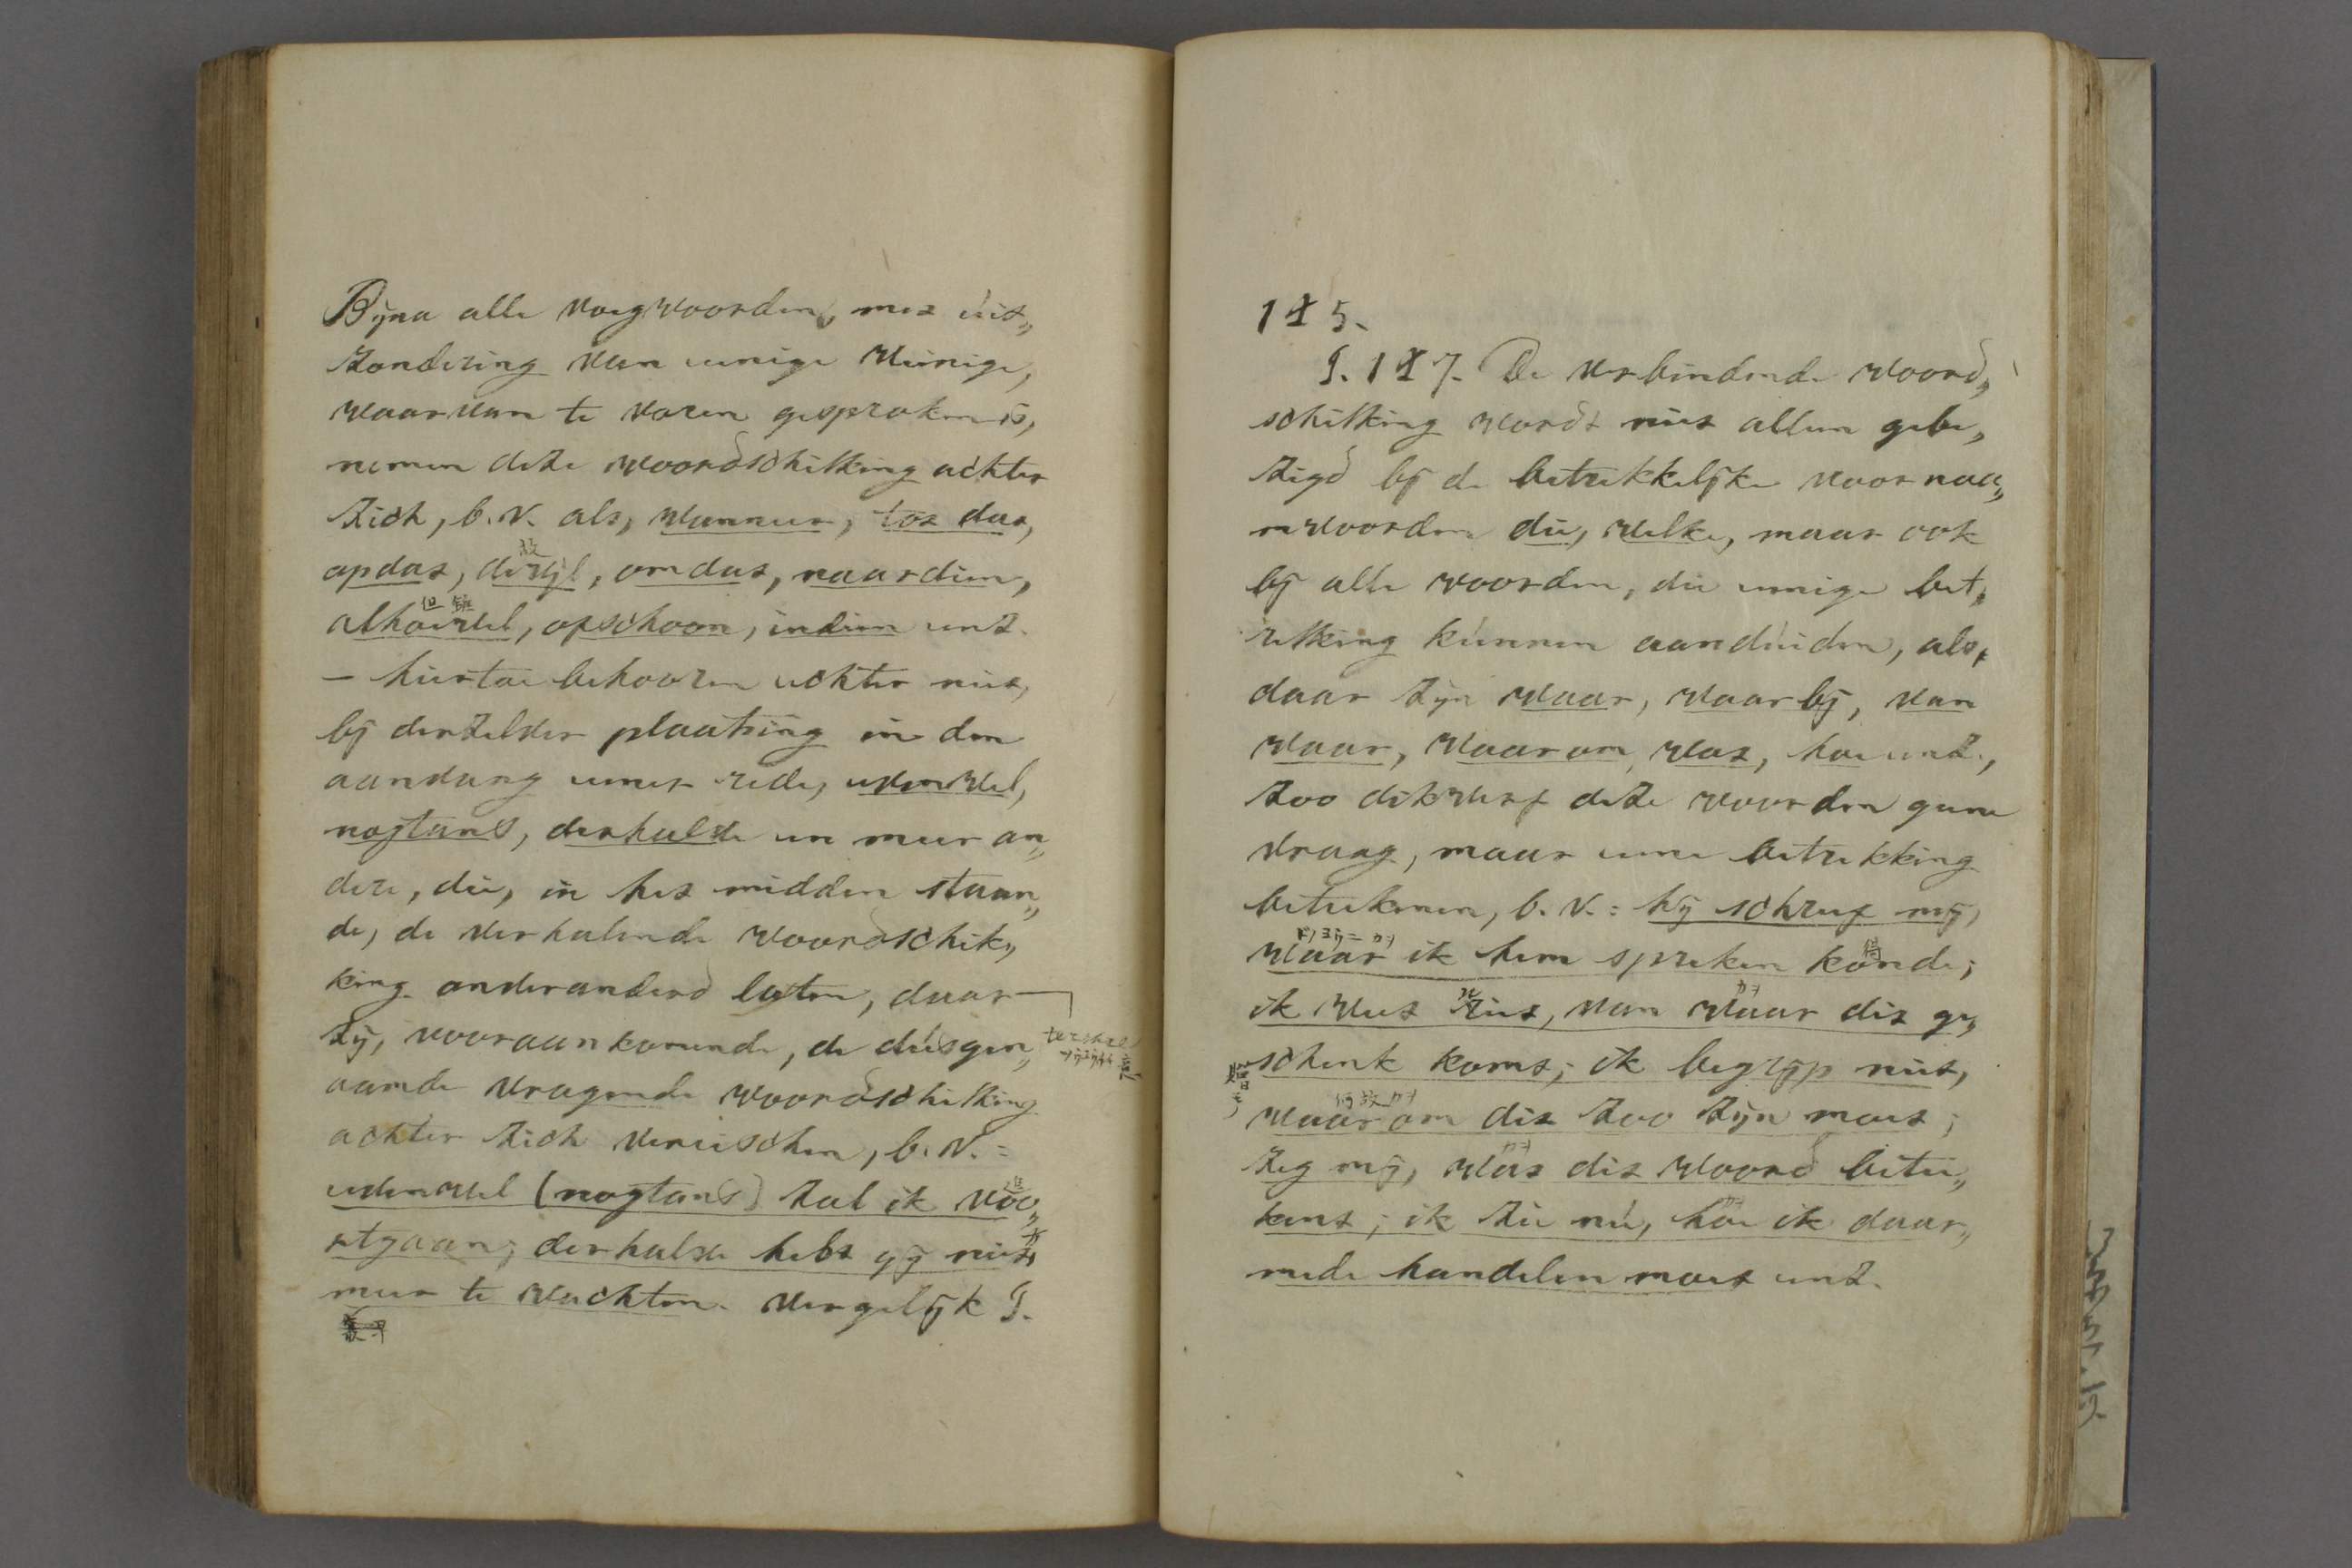 Bijna alle voegwoorden, met uit„
zondering van eenige weinige,
waarvan te voren gesproken is,
nemen deze woordschikking achter
zich, b. v. als, wanneer, tot dat,
opdat, dewijl, omdat, naardien,
alhoewel, opschoon, indien enz.
— hiertoe behooren echter niet,
bij derzelver plaatsing in den
aanvang eener rede, evenwel,
nogtans, derhalve en meer an„
dere, die, in het midden staan„
de, de verhalende woordschik„
king onveranderd laten, daar
zij, vooraankomende, de dusgen„
aamde vragende woordschikking
achter zich vereischen, b. v. :
evenwel (nogtans) zal ik voo„
rtgaan; derhalve hebt gij niet
meer te wachten. Vergelijk §.
故
但 雖
145.
§. 147. De verbindende woord„
schikking wordt niet alleen gebe„
zigd bij de betrekkelijke voornaa„
mwoorden die, welke, maar ook
bij alle woorden, die eenige bet„
rekking kunnen aanduiden, als,
daar zijn waar, waarbij, van
waar, waarom, wat, hoe enz.,
zoo dikwerf deze woorden geene
vraag, maar eene betrekking
beteekenen, b. v. : hij schreef mij,
waar ik hem spreken konde;
ik weet niet, van waar dit ge„
schenk komt; ik begrijp niet,
waarom dit zoo zijn moet;
zeg mij, wat dit woord betee„
kent; ik zie nu, hoe ik daar„
mede handelen moet enz.
得
カヲ
何故カヲ
カヲ